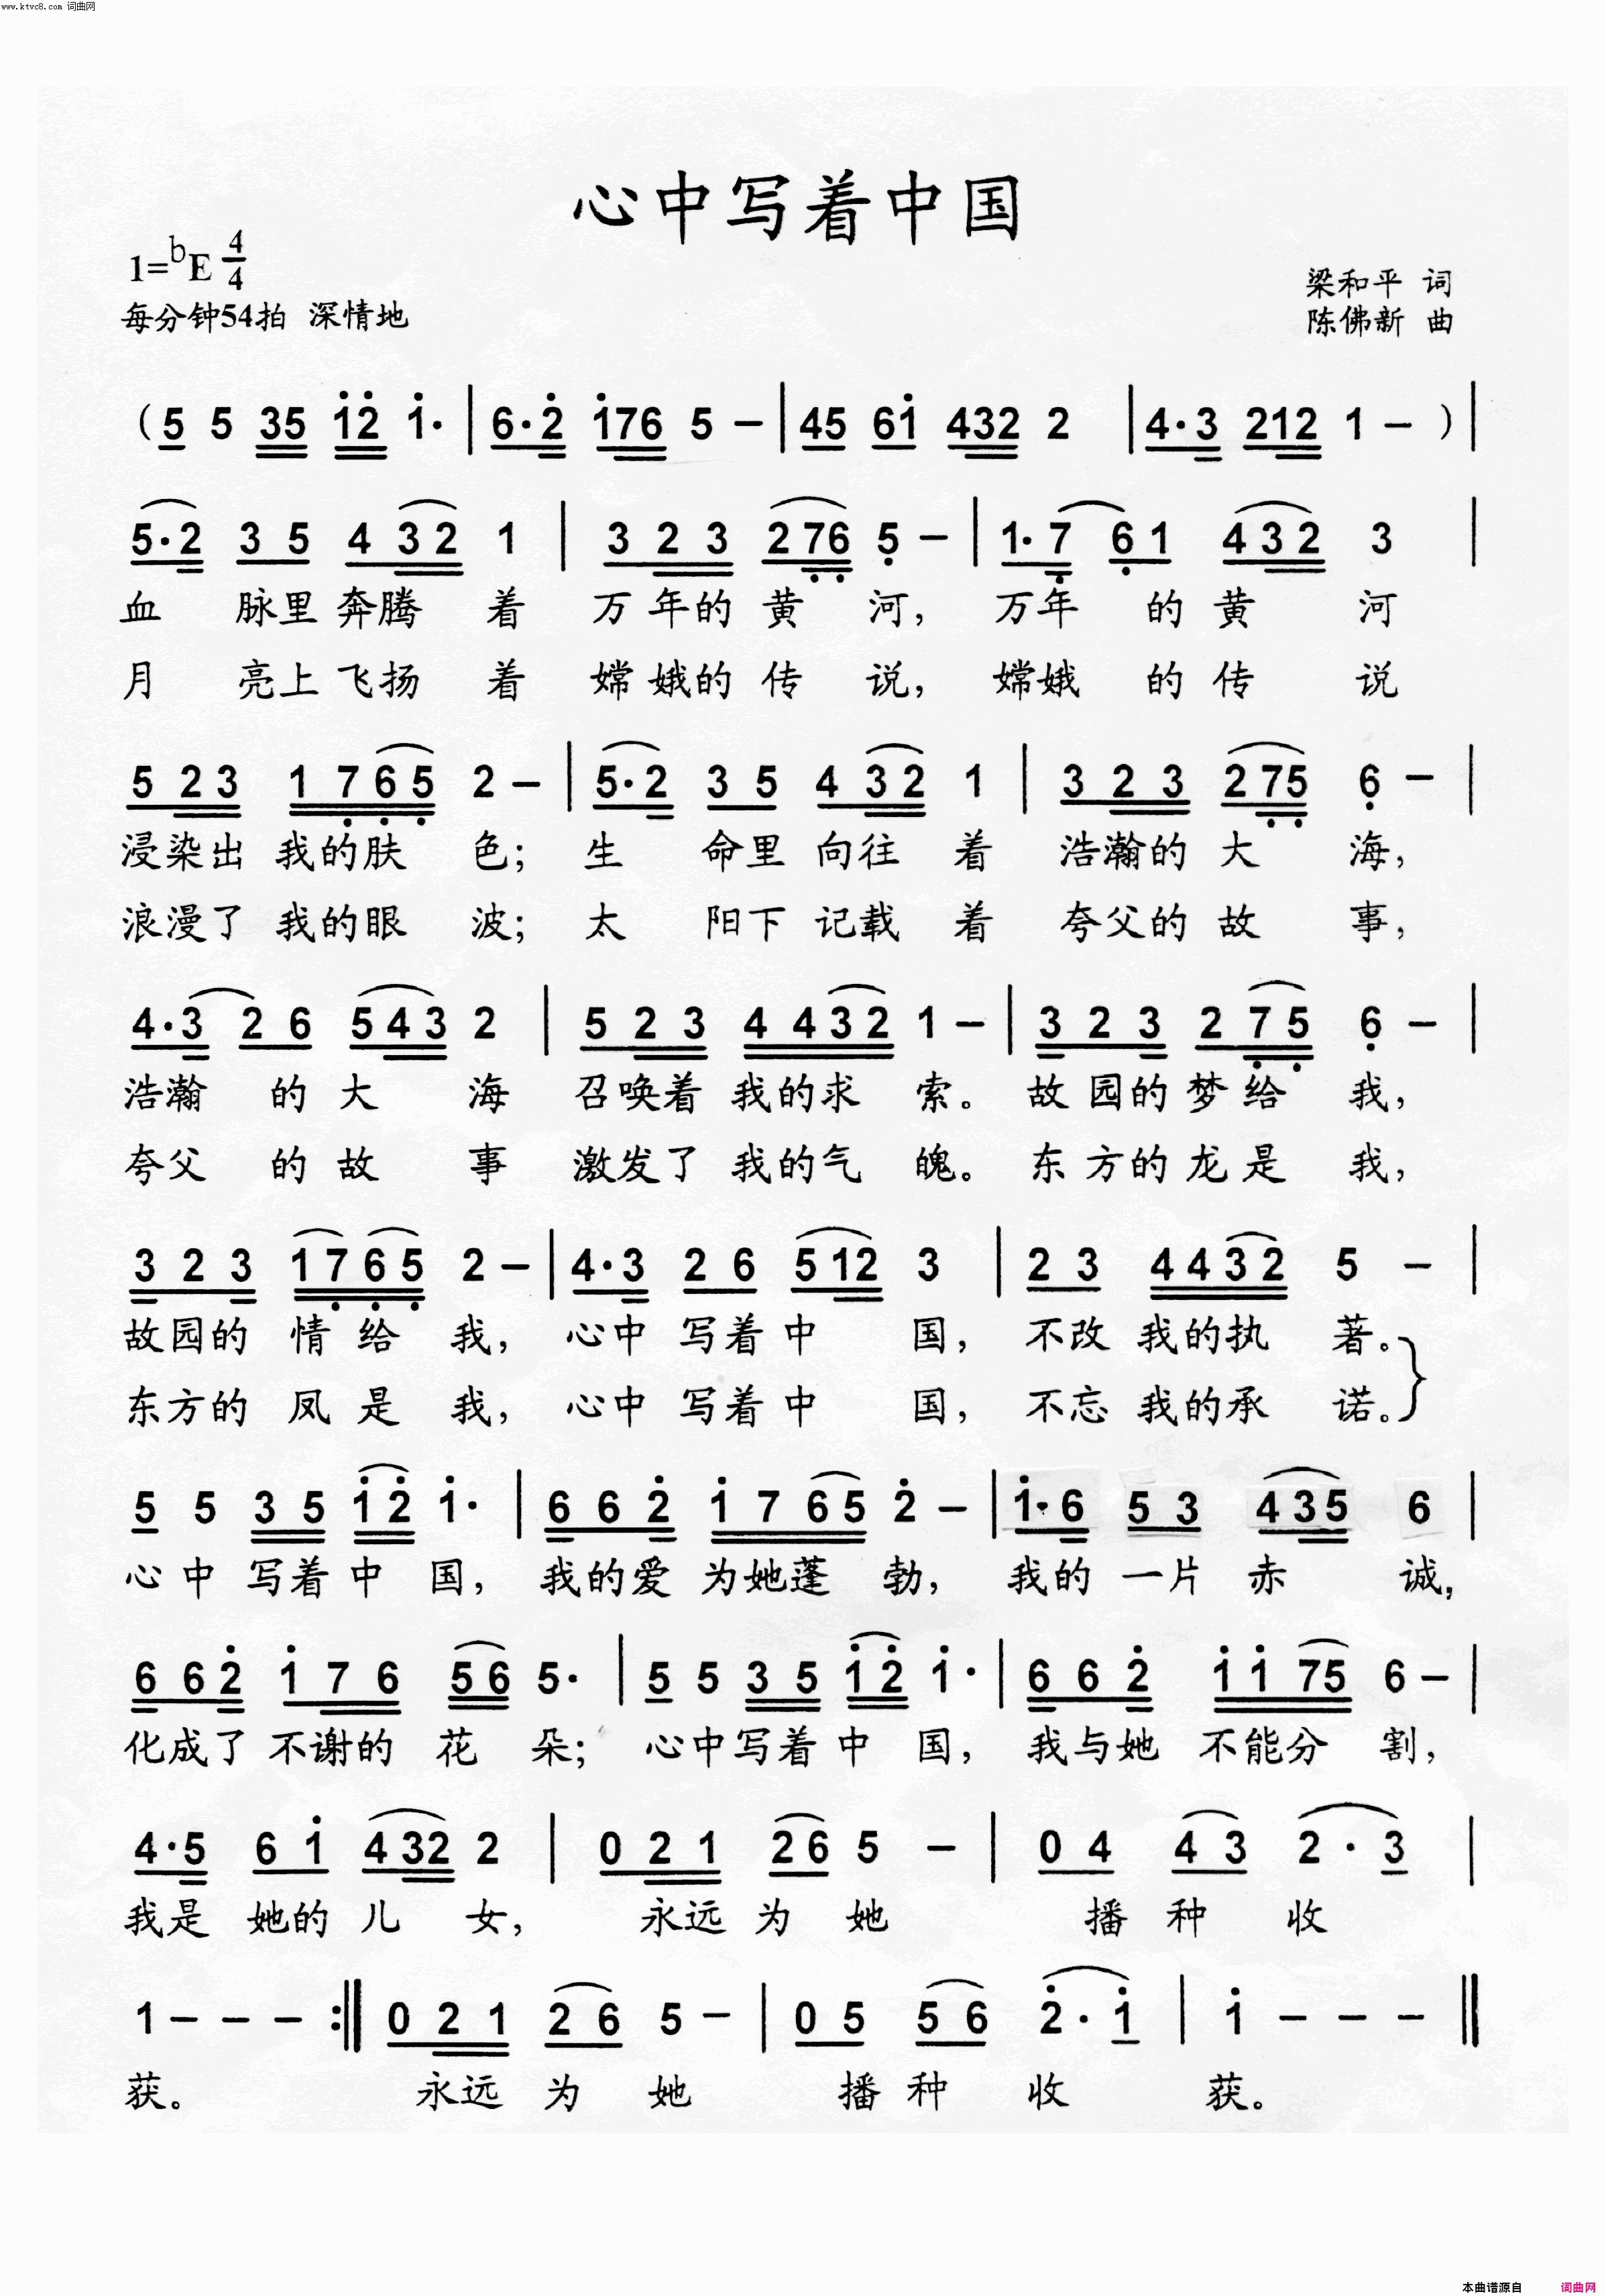 www.ktvc8.com 词曲网
心中写着中国
1=bE 4/4
梁和平 词
每分钟54拍 深情地
陈佛新 曲
(5 5 35 12 1· | 6·2 176 5 – | 45 61 432 2 | 4·3 212 1 – ) |
5·2 3 5 4 3 2 1 | 3 2 3 2 76 5 – | 1·7 6 1 4 3 2 3 |
血 脉里 奔腾 着 万年的 黄 河, 万年 的 黄 河
月 亮上 飞扬 着 嫦娥的 传 说, 嫦娥 的 传 说
5 2 3 1 7 6 5 2 – | 5·2 3 5 4 3 2 1 | 3 2 3 2 7 5 6 – |
浸染出 我的肤 色; 生 命里 向往 着 浩瀚的 大 海,
浪漫了 我的眼 波; 太 阳下 记载 着 夸父的 故 事,
4·3 2 6 5 4 3 2 | 5 2 3 4 4 3 2 1 – | 3 2 3 2 7 5 6 – |
浩瀚 的 大 海 召唤着 我的求 索。 故园的 梦给 我,
夸父 的 故 事 激发了 我的气 魄。 东方的 龙是 我,
3 2 3 1 7 6 5 2 – | 4·3 2 6 5 12 3 | 2 3 4 4 3 2 5 – |
故园的 情给 我, 心中 写着 中 国, 不改 我的执 著。
东方的 凤是 我, 心中 写着 中 国, 不忘 我的承 诺。
5 5 3 5 1 2 1· | 6 6 2 1 7 6 5 2 – | 1·6 5 3 4 3 5 6 |
心中 写着 中 国, 我的爱 为她蓬 勃, 我的 一片 赤 诚,
6 6 2 1 7 6 5 6 5· | 5 5 3 5 1 2 1· | 6 6 2 1 1 75 6 – |
化成了 不谢的 花 朵; 心中写着 中 国, 我与她 不能分 割,
4·5 6 1 4 32 2 | 0 2 1 2 6 5 – | 0 4 4 3 2 · 3 |
我是 她的 儿 女, 永远 为 她 播 种 收
1 – – – :‖ 0 2 1 2 6 5 – | 0 5 5 6 2 · 1 | 1 – – – ‖
获。 永远 为 她 播 种 收 获。
本曲谱源自 词曲网